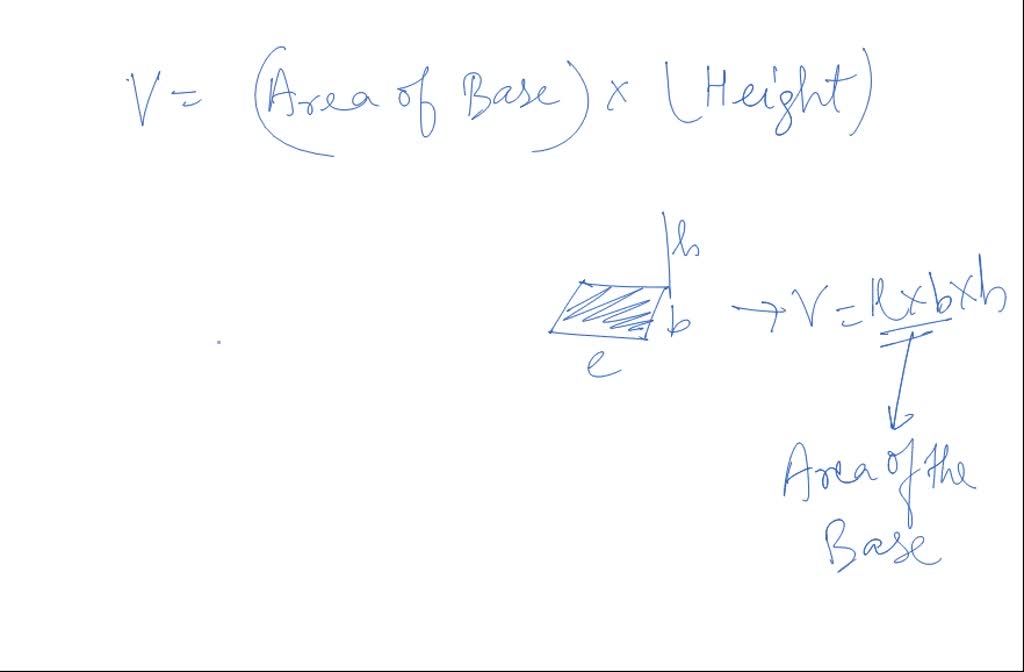 V = (Area of Base) × (Height)
h
b
l
→ V = l×b×h
Area of the
Base